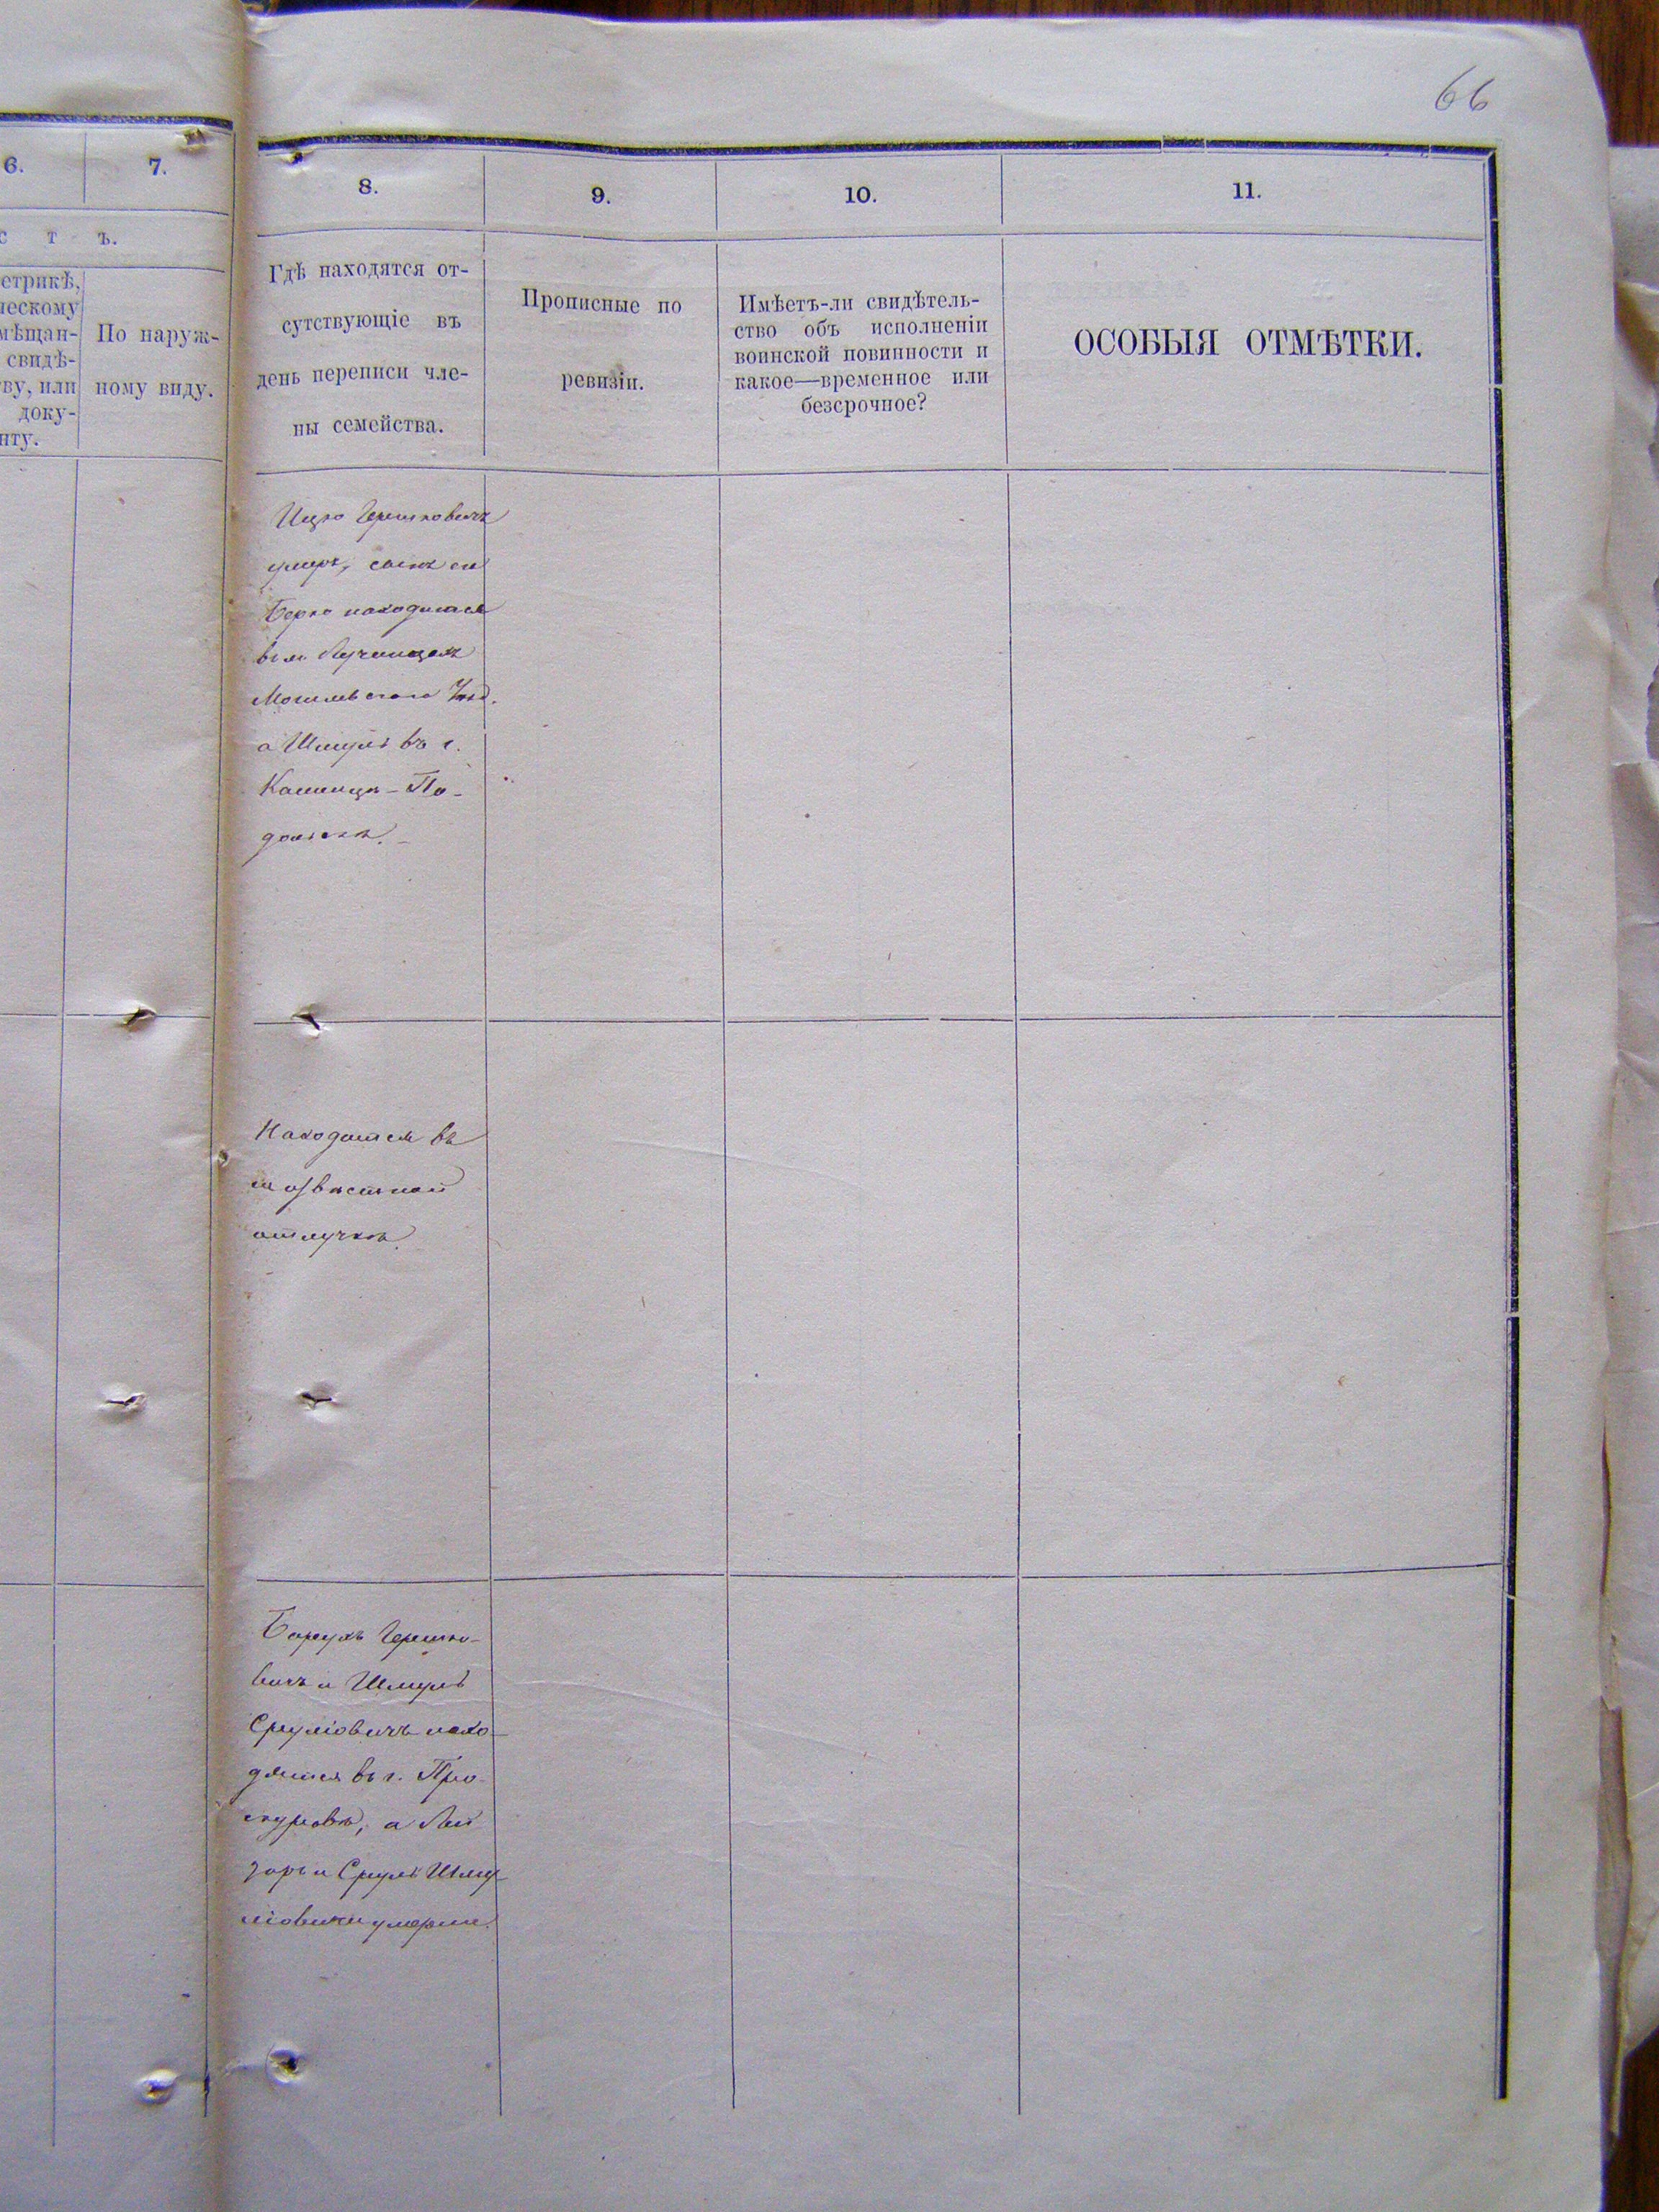 66
6.
7.
8.
9.
10.
11.
с т ъ.
етрикѣ,
ческому
мѣщан-
свидѣ-
ву, или
доку-
нту.
По наруж-
ному виду.
Гдѣ находятся от-
сутствующіе въ
день переписи чле-
ны семейства.
Прописные по
ревизіи.
Имѣетъ-ли свидѣтель-
ство объ исполненіи
воинской повинности и
какое—временное или
безсрочное?
ОСОБЫЯ ОТМѢТКИ.
Ицко Гершковичъ
умеръ, сынъ его
Берко находится
въ м. Лучинцахъ
Могилевскаго Уѣзд.
а Шмуль въ г.
Каменцѣ-По-
дольскѣ.
Находятся въ
неизвѣстной
отлучкѣ.
Борухъ Гершко-
вичъ и Шмуль
Срульовичъ нахо-
дятся въ г. Про-
скуровѣ, а Лей
зоръ и Сруль Шму-
льовичи умерли.